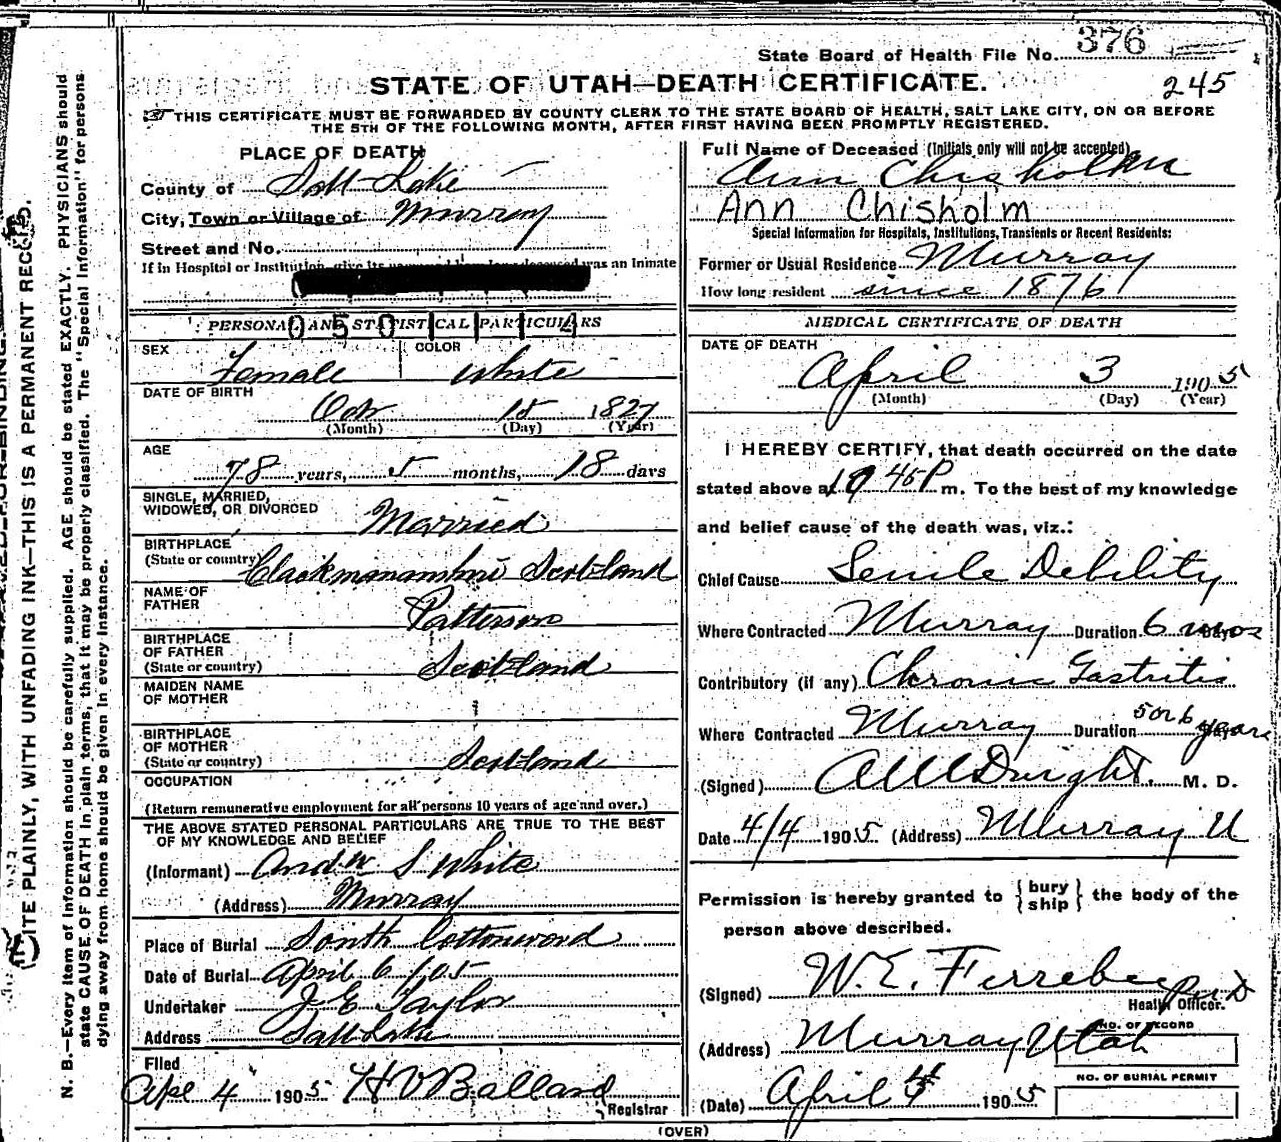 State Board of Health File No. 376
STATE OF UTAH—DEATH CERTIFICATE.
245
THIS CERTIFICATE MUST BE FORWARDED BY COUNTY CLERK TO THE STATE BOARD OF HEALTH, SALT LAKE CITY, ON OR BEFORE
THE 5TH OF THE FOLLOWING MONTH, AFTER FIRST HAVING BEEN PROMPTLY REGISTERED.
PLACE OF DEATH
County of Salt Lake
City, Town or Village of Murray
Street and No.
If in Hospital or Institution, give its was an Inmate
0 5 0 1 1 1 4
PERSONAL AND STATISTICAL PARTICULARS
SEX
Female
COLOR
White
DATE OF BIRTH
Oct 15 1827
(Month) (Day) (Year)
AGE
78 years, 5 months, 18 days
SINGLE, MARRIED,
WIDOWED, OR DIVORCED
Married
BIRTHPLACE
(State or country)
Clackmananshire Scotland
NAME OF
FATHER
Patterson
BIRTHPLACE
OF FATHER
(State or country)
Scotland
MAIDEN NAME
OF MOTHER
BIRTHPLACE
OF MOTHER
(State or country)
Scotland
OCCUPATION
(Return remunerative employment for all persons 10 years of age and over.)
THE ABOVE STATED PERSONAL PARTICULARS ARE TRUE TO THE BEST
OF MY KNOWLEDGE AND BELIEF
(Informant) Andw S White
(Address) Murray
Place of Burial South Cottonwood
Date of Burial April 6/05
Undertaker J E Taylor
Address Salt Lake
Filed
Apl 4 1905 H V Ballard
Registrar
Full Name of Deceased (Initials only will not be accepted)
Ann Chisholm
Ann Chisholm
Special Information for Hospitals, Institutions, Transients or Recent Residents:
Former or Usual Residence Murray
How long resident since 1876
MEDICAL CERTIFICATE OF DEATH
DATE OF DEATH
April 3 1905
(Month) (Day) (Year)
I HEREBY CERTIFY, that death occurred on the date
stated above at 10 45 P m. To the best of my knowledge
and belief cause of the death was, viz.:
Chief Cause Senile Debility
Where Contracted Murray Duration 6 mos
Contributory (if any) Chronic Gastritis
Where Contracted Murray Duration 5 or 6 years
(Signed) Dwight M. D.
Date 4/4 1905 (Address) Murray U
Permission is hereby granted to {bury
ship} the body of the
person above described.
(Signed) W. E. Ferrebee
Health Officer.
(Address) Murray Utah
NO. OF RECORD
NO. OF BURIAL PERMIT
(Date) April 1905
(OVER)
WRITE PLAINLY, WITH UNFADING INK—THIS IS A PERMANENT RECORD.
N. B.—Every item of information should be carefully supplied. AGE should be stated EXACTLY. PHYSICIANS should
state CAUSE OF DEATH in plain terms, that it may be properly classified. The "Special Information" for persons
dying away from home should be given in every instance.